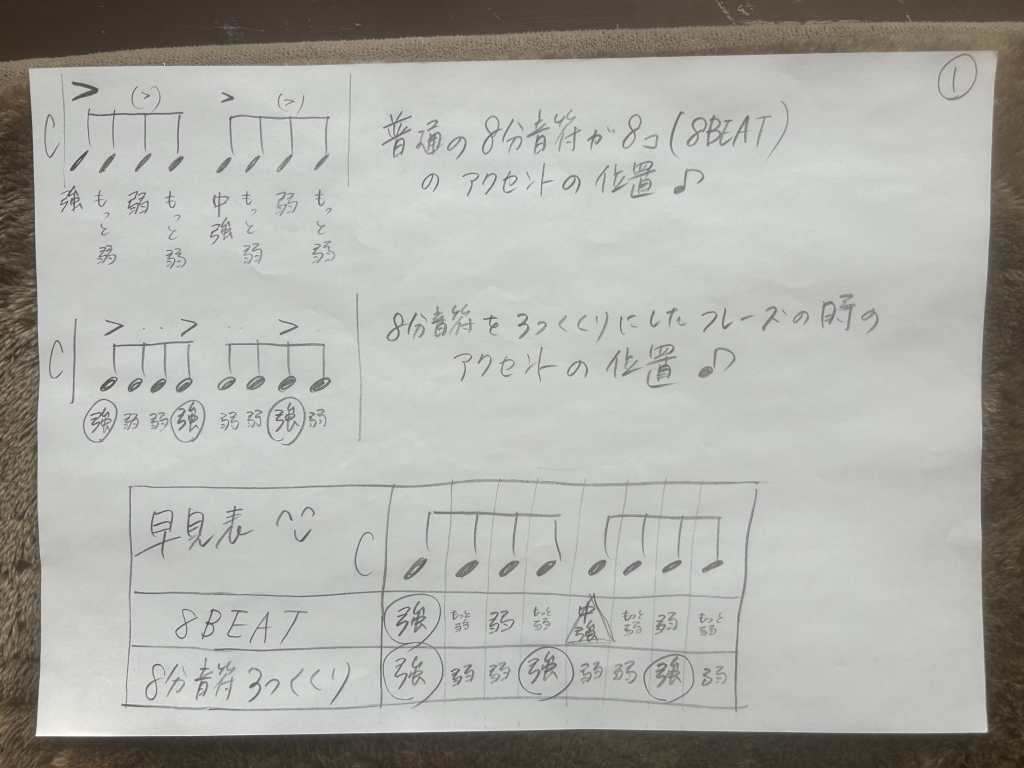 ①
> (>) > (>)
C
強 もっと弱 弱 もっと弱 中強 もっと弱 弱 もっと弱
普通の8分音符が8コ(8BEAT)
のアクセントの位置♪
> ・・ > ・・ > ・
C
強 弱 弱 強 弱 弱 強 弱
8分音符を3つくくりにしたフレーズの時の
アクセントの位置♪
早見表 C
8BEAT 強 もっと弱 弱 もっと弱 中強 もっと弱 弱 もっと弱
8分音符3つくくり 強 弱 弱 強 弱 弱 強 弱